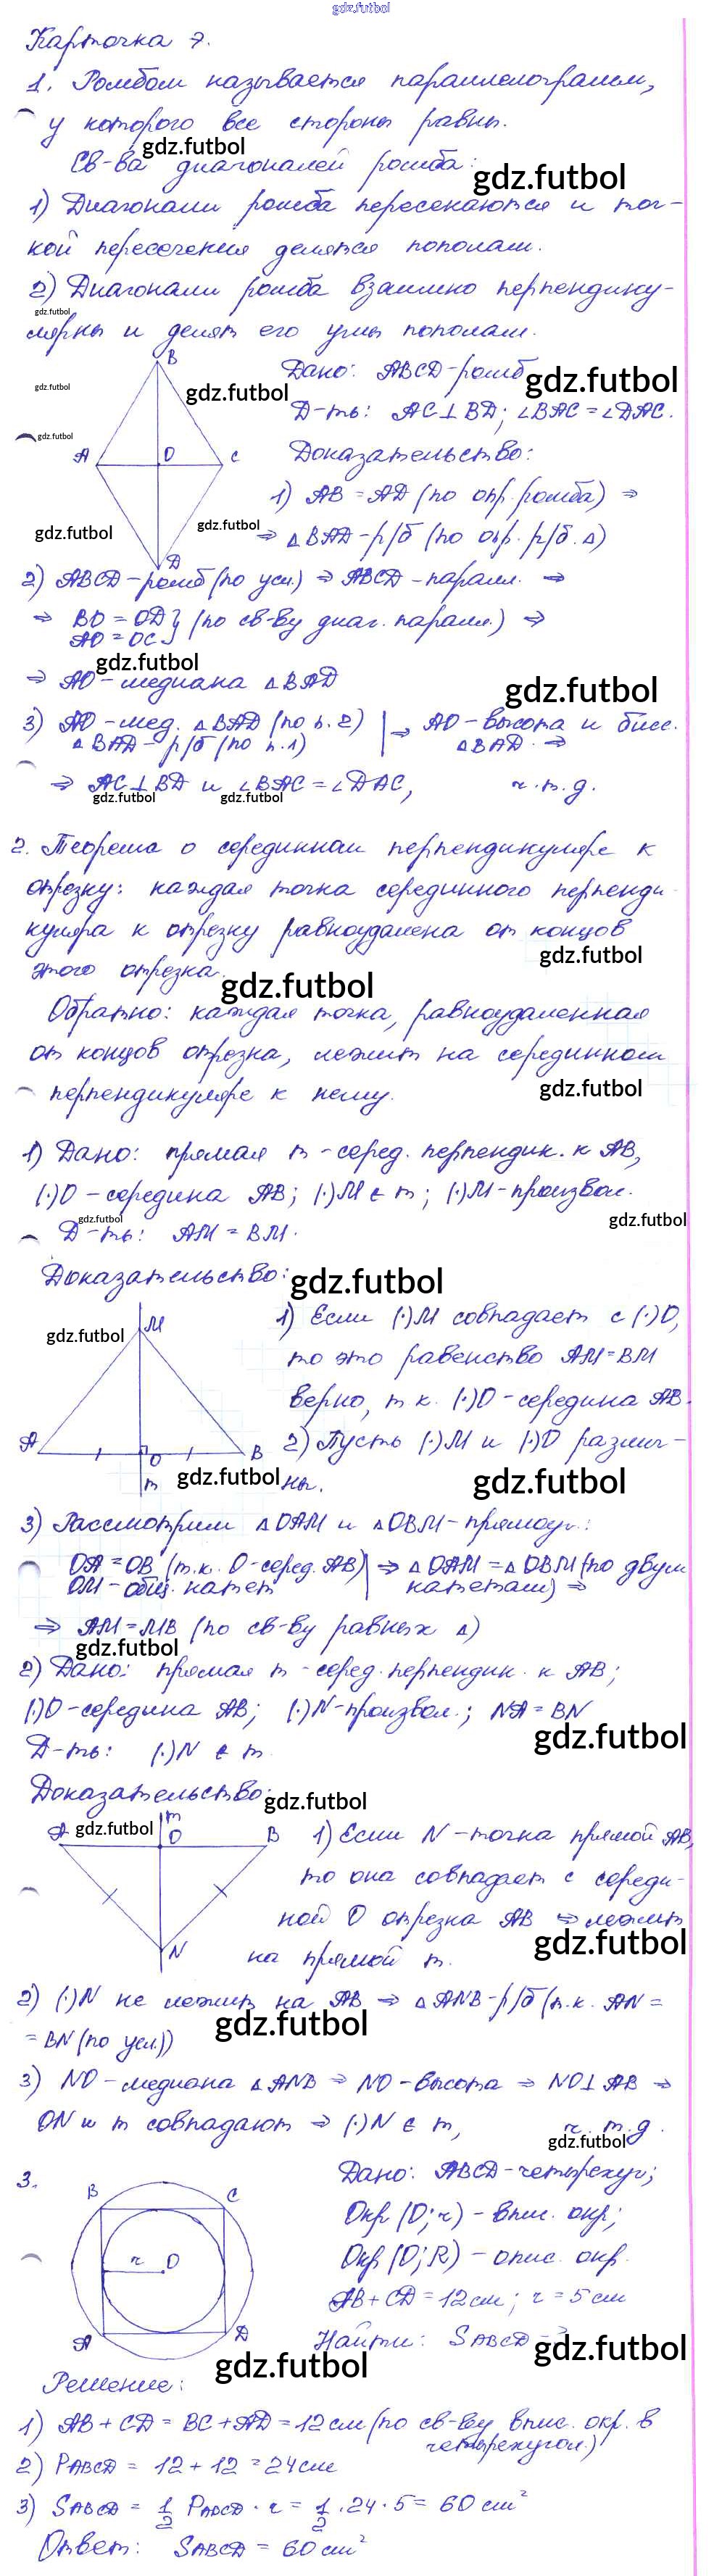 gdz.futbol
Карточка 7.
1. Ромбом называется параллелограмм,
у которого все стороны равны.
gdz.futbol
Св-ва диагоналей ромба:
gdz.futbol
1) Диагонали ромба пересекаются и точ-
кой пересечения делятся пополам.
2) Диагонали ромба взаимно перпендику-
gdz.futbol
лярны и делят его углы пополам.
B
Дано: ABCD-ромб
gdz.futbol
gdz.futbol
gdz.futbol
Д-ть: AC⊥BD; ∠BAC=∠DAC.
gdz.futbol
A O C
Доказательство:
1) AB=AD (по опр. ромба) ⇒
gdz.futbol
gdz.futbol
⇒ △BAD-р/б (по опр. р/б. △)
D
2) ABCD-ромб (по усл.) ⇒ ABCD-паралл. ⇒
⇒ BO=OD} (по св-ву диаг. паралл.) ⇒
AO=OC}
gdz.futbol
⇒ AO-медиана △BAD
gdz.futbol
3) AO-мед. △BAD (по п.2) | ⇒ AO-высота и бисс.
△BAD-р/б (по п.1) | △BAD. ⇒
⇒ AC⊥BD и ∠BAC=∠DAC, ч.т.д.
gdz.futbol
gdz.futbol
2. Теорема о серединном перпендикуляре к
отрезку: каждая точка серединного перпенди-
куляра к отрезку равноудалена от концов
gdz.futbol
этого отрезка.
gdz.futbol
Обратно: каждая точка, равноудаленная
от концов отрезка, лежит на серединном
gdz.futbol
перпендикуляре к нему.
1) Дано: прямая m-серед. перпендик. к AB,
(·)O-середина AB; (·)M∈m; (·)M-произвол.
gdz.futbol
gdz.futbol
Д-ть: AM=BM.
Доказательство:
gdz.futbol
M
gdz.futbol
1) Если (·)M совпадает с (·)O,
то это равенство AM=BM
верно, т.к. (·)O-середина AB.
A O B
m
2) Пусть (·)M и (·)O различ-
gdz.futbol
ны.
gdz.futbol
3) Рассмотрим △OAM и △OBM-прямоуг.:
OA=OB (т.к. O-серед. AB) | ⇒ △OAM=△OBM (по двум
OM-общ. катет | катетам) ⇒
⇒ AM=MB (по св-ву равных △)
gdz.futbol
2) Дано: прямая m-серед. перпендик. к AB;
(·)O-середина AB; (·)N-произвол.; NA=BN
gdz.futbol
Д-ть: (·)N∈m.
Доказательство:
gdz.futbol
m
A O B
gdz.futbol
1) Если N-точка прямой AB,
то она совпадает с середи-
ной O отрезка AB ⇒ лежит
gdz.futbol
N
на прямой m.
2) (·)N не лежит на AB ⇒ △ANB-р/б (т.к. AN=
gdz.futbol
=BN (по усл.))
3) NO-медиана △ANB ⇒ NO-высота ⇒ NO⊥AB ⇒
ON и m совпадают ⇒ (·)N∈m, ч.т.д.
gdz.futbol
3.
B C
r O
A D
Дано: ABCD-четырехуг;
Окр (O;r)-впис. окр;
Окр (O;R)-опис. окр.
AB+CD=12см; r=5см
Найти: SABCD-?
gdz.futbol
gdz.futbol
Решение:
1) AB+CD=BC+AD=12см (по св-ву впис. окр. в
четырехугол.)
2) PABCD=12+12=24см
3) SABCD=1/2 PABCD·r=1/2·24·5=60см²
Ответ: SABCD=60см²